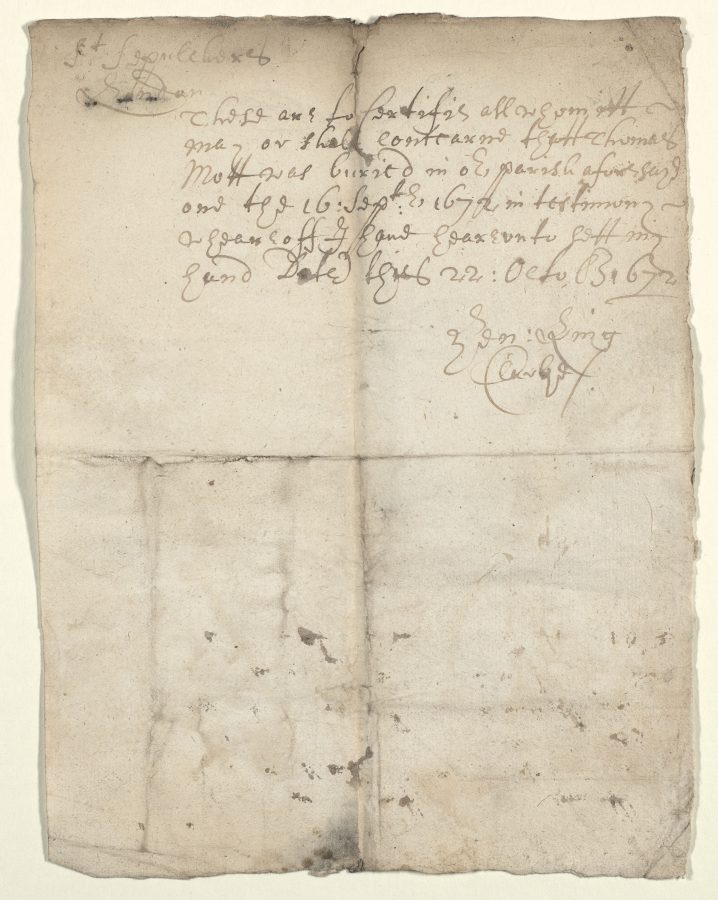 St Sepulchers
London
These are to Certifie all whom itt
may or shall conscarne thatt Thomas
Mott was buried in or parish aforesaid
one the 16: Septr 1672 in testimony
wheareoff I have heareunto sett my
hand Dated this 22: Octob 1672
Hen: King
Clarke